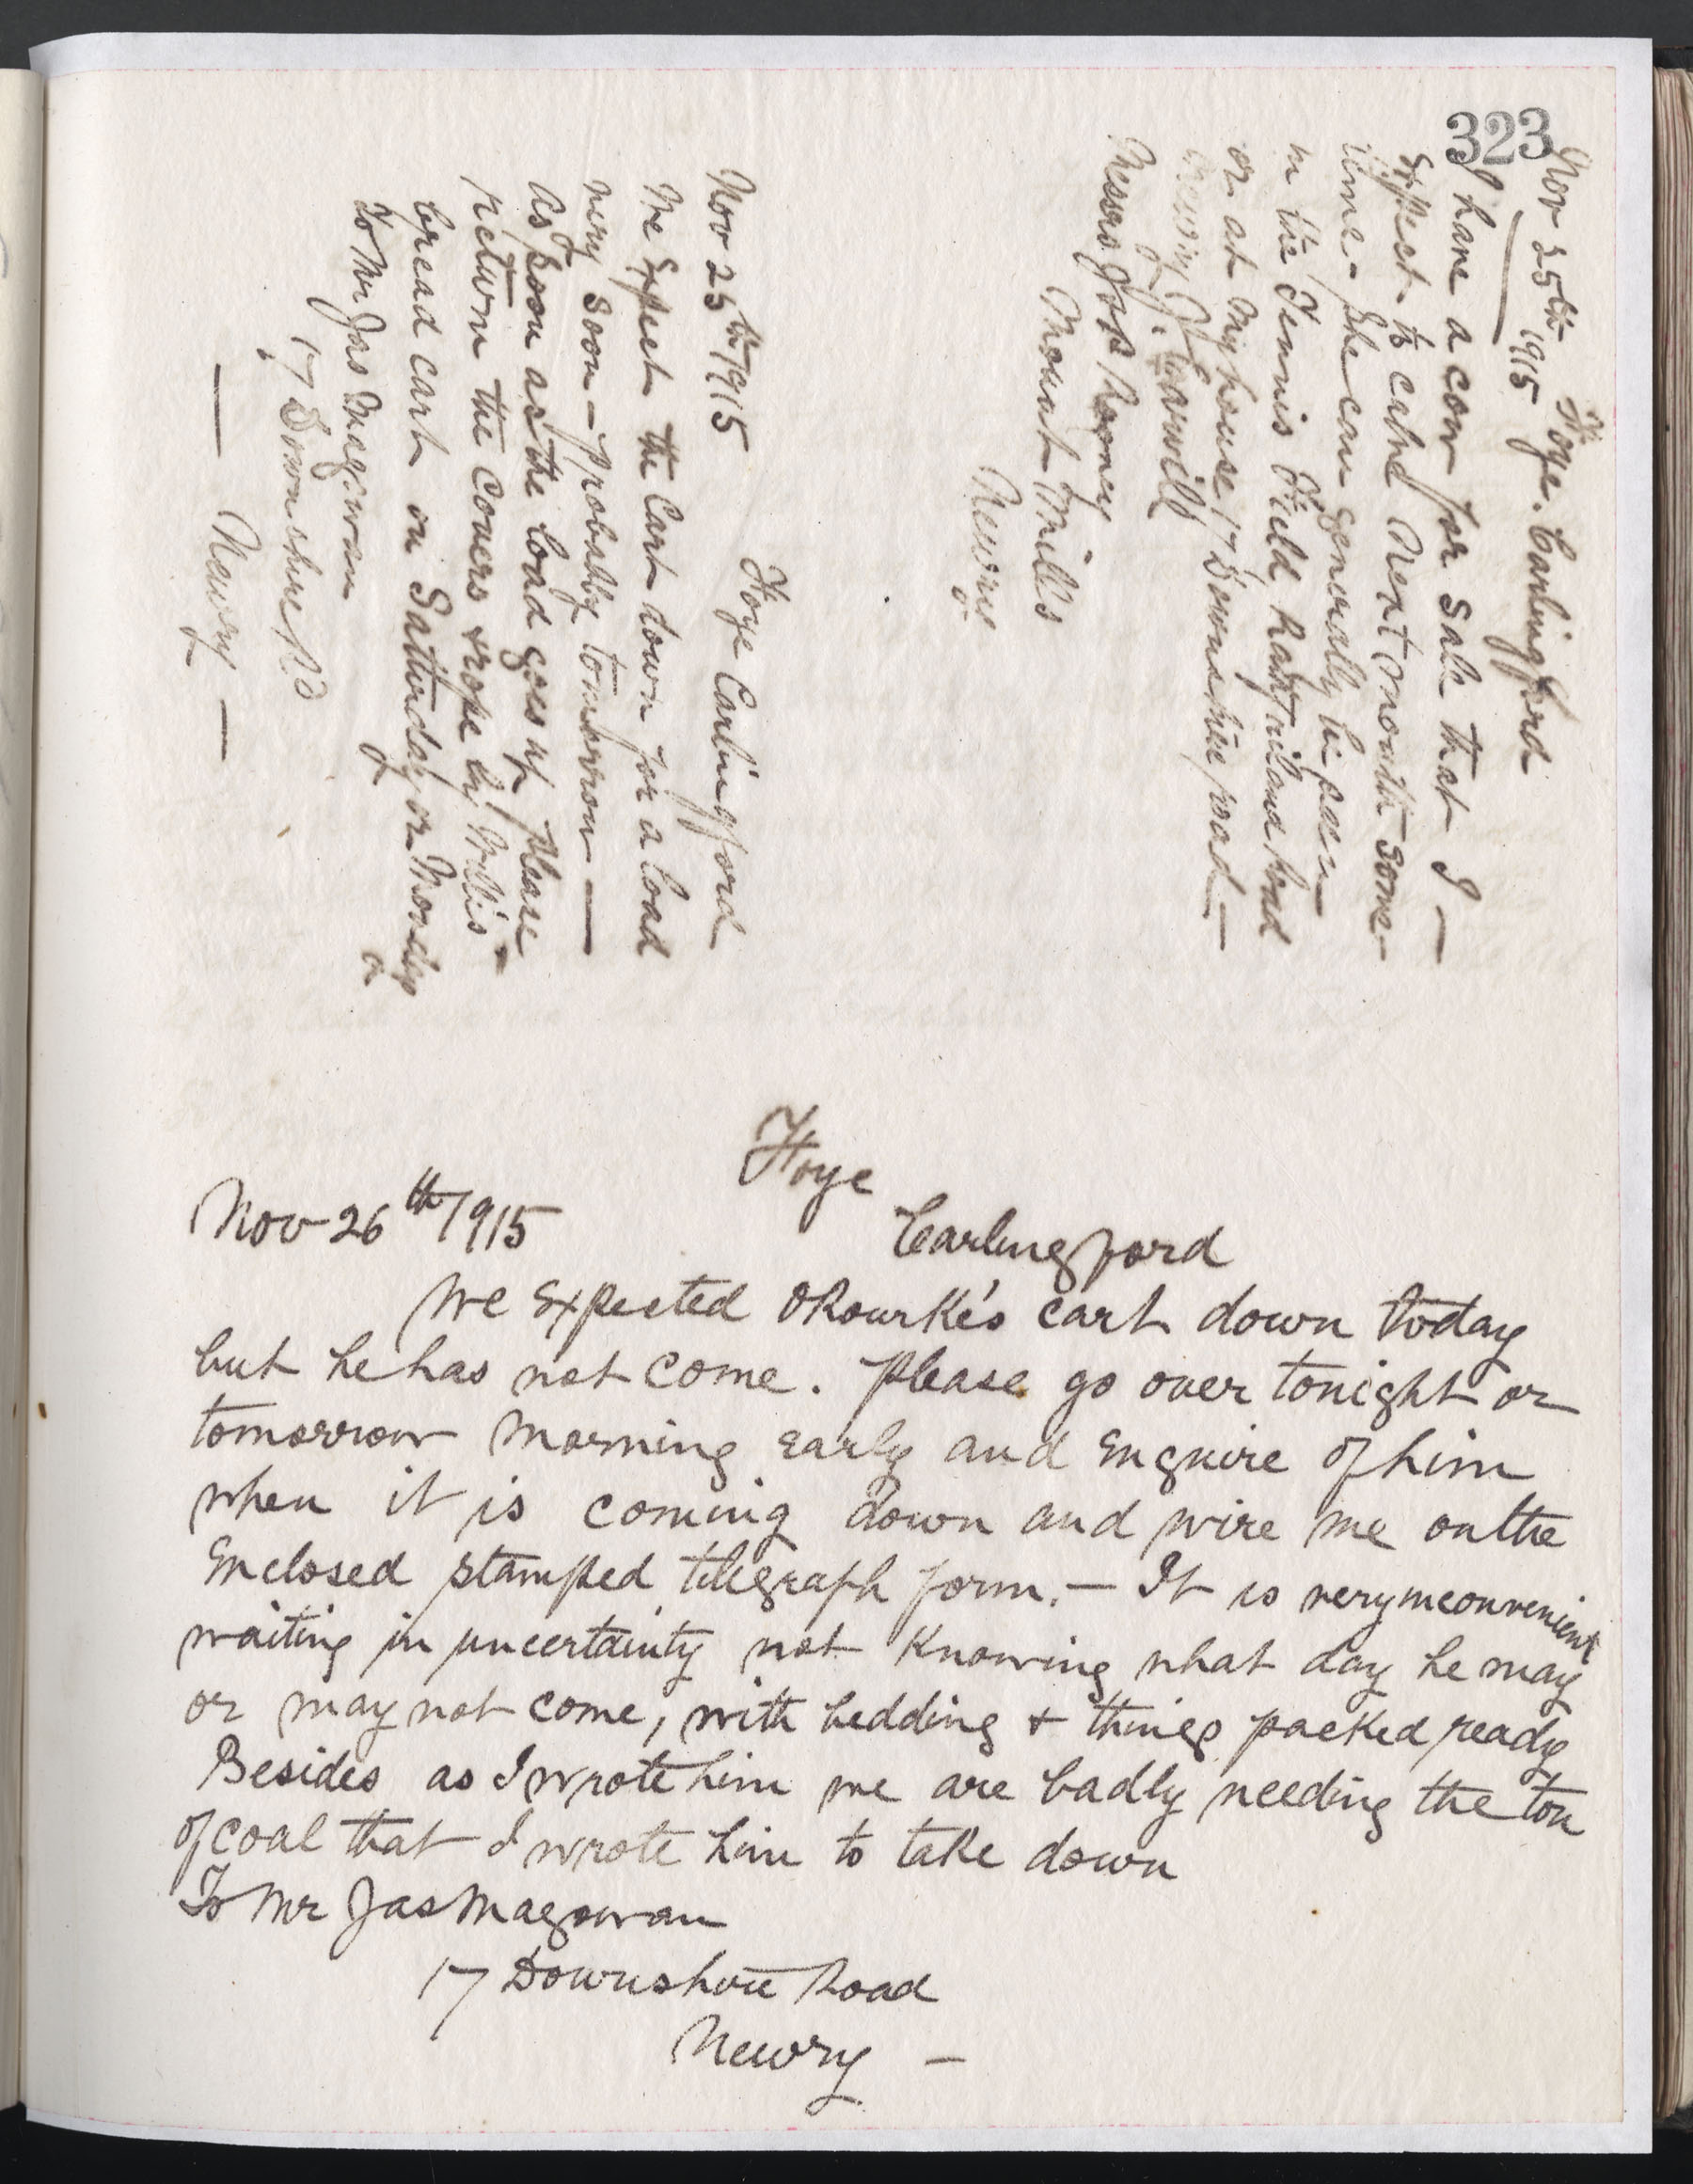 323
Foye. Carlingford
Nov 25th 1915
I have a cow for sale that I —
expect to calve next month some
time. She can generally be seen
in the Tennis Field, Rathfriland road
or at my house 17 Downshire road —
Newry J.
Messrs Jos
Mount Mills
Newry
Foye Carlingford
Nov 25th 1915
We Expect the Cart down for a load
very soon — probably tomorrow —
As soon as the load goes up please
return the covers & rope by Willis
bread cart on Satturday or Monday
To Mr Jas Magowan
17 Downshire Rd
— Newry —
Foye
Nov 26th 1915
Carlingford
We Expected ORourke's cart down today
but he has not come. Please go over tonight or
tomorrow morning early and Enquire of him
when it is coming down and wire me on the
Enclosed stamped telegraph form. — It is very inconvenient
waiting in uncertainty not Knowing what day he may
or may not come, with bedding & things packed ready
Besides as I wrote him we are badly needing the ton
of coal that I wrote him to take down
To Mr Jas Magowan
17 Downshire Road
Newry —